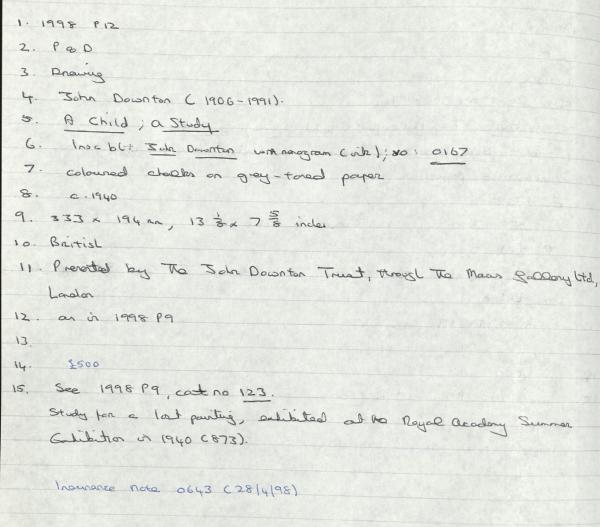 1. 1998 P12
2. P & D
3. Drawing
4. John Downton (1906-1991).
5. A Child; a Study
6. Insc bl: John Downton with monogram (ink); vo: 0167
7. coloured chalks on grey-toned paper
8. c. 1940
9. 333 x 194 mm, 13 1/8 x 7 5/8 inches
10. British
11. Presented by The John Downton Trust, through The Maas Gallery Ltd,
London
12. as in 1998 P9
13.
14. £500
15. See 1998 P9, cat no 123.
Study for a lost painting, exhibited at the Royal Academy Summer
Exhibition in 1940 (873).
Insurance note 0643 (28/4/98)